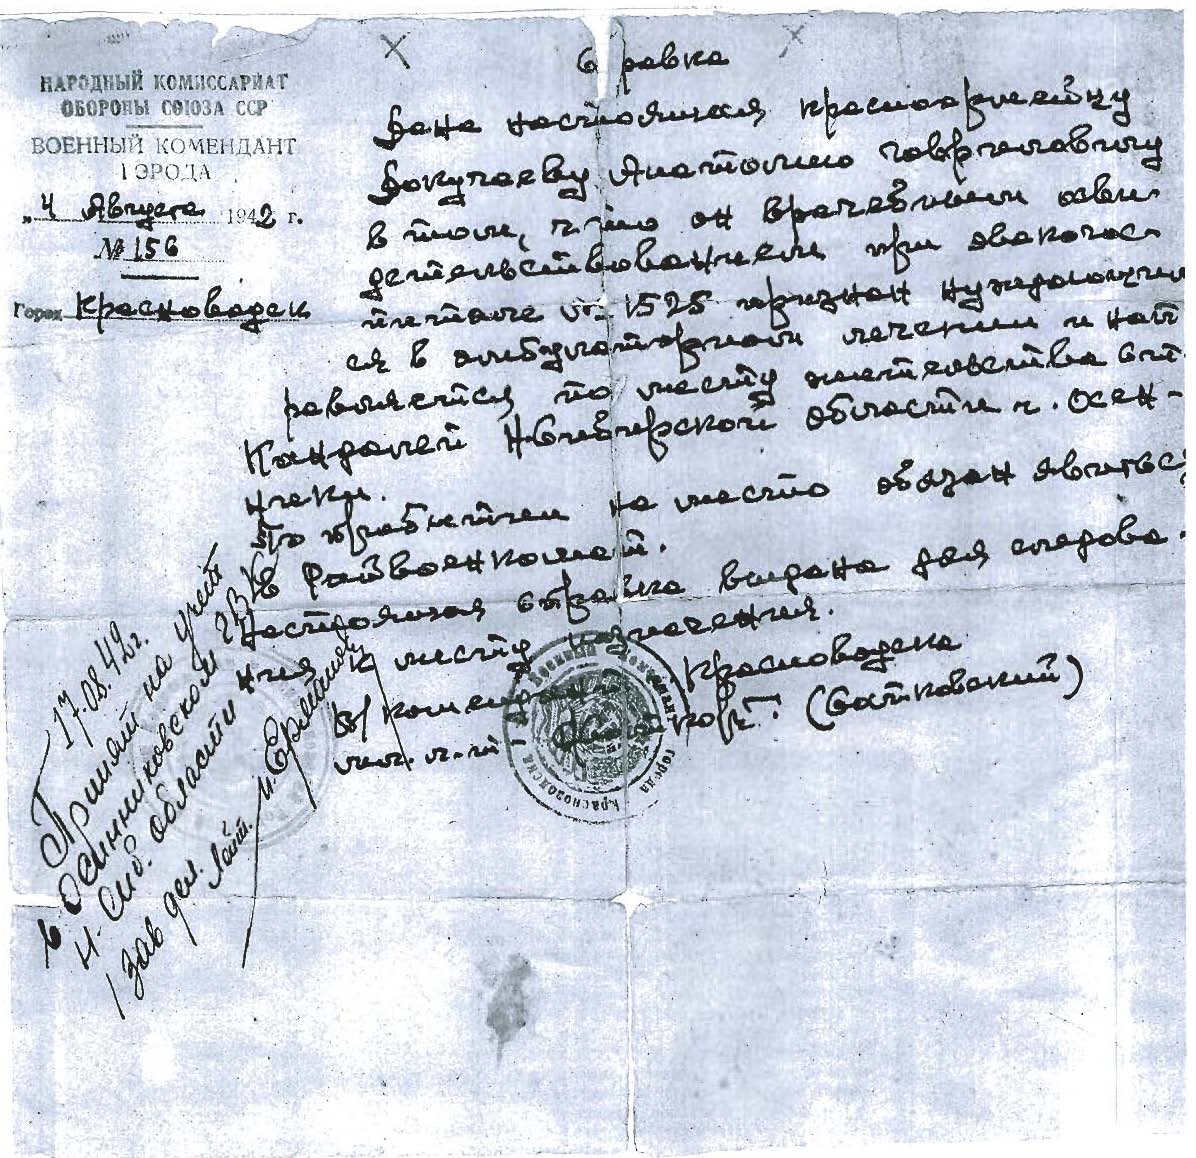 НАРОДНЫЙ КОМИССАРИАТ
ОБОРОНЫ СОЮЗА ССР
ВОЕННЫЙ КОМЕНДАНТ
ГОРОДА
„4 Августа 1942 г.
№ 156
Город Красноводск
Справка
Дана настоящая красноармейцу
Докучаеву Анатолию Гавриловичу
в том, что он врачебным осви-
детельствованием при эвакогос-
питале № 1525 признан нуждающим
ся в амбулаторном лечении и нап
равляется по месту жительства ст.
Кандалеп Н-Сибирской области г. Осин-
ники.
По прибытии на место обязан явиться
в Райвоенкомат.
Настоящая справка выдана для следова-
ния к месту назначения.
В/комендант Красноводска
(Сатковский)
17.08.42г.
Принят на учет
в Осинниковском РВК
Н. Сиб. области
Зав дел. Лейт.
и. Ермаков
Военный Комендант города Красноводска